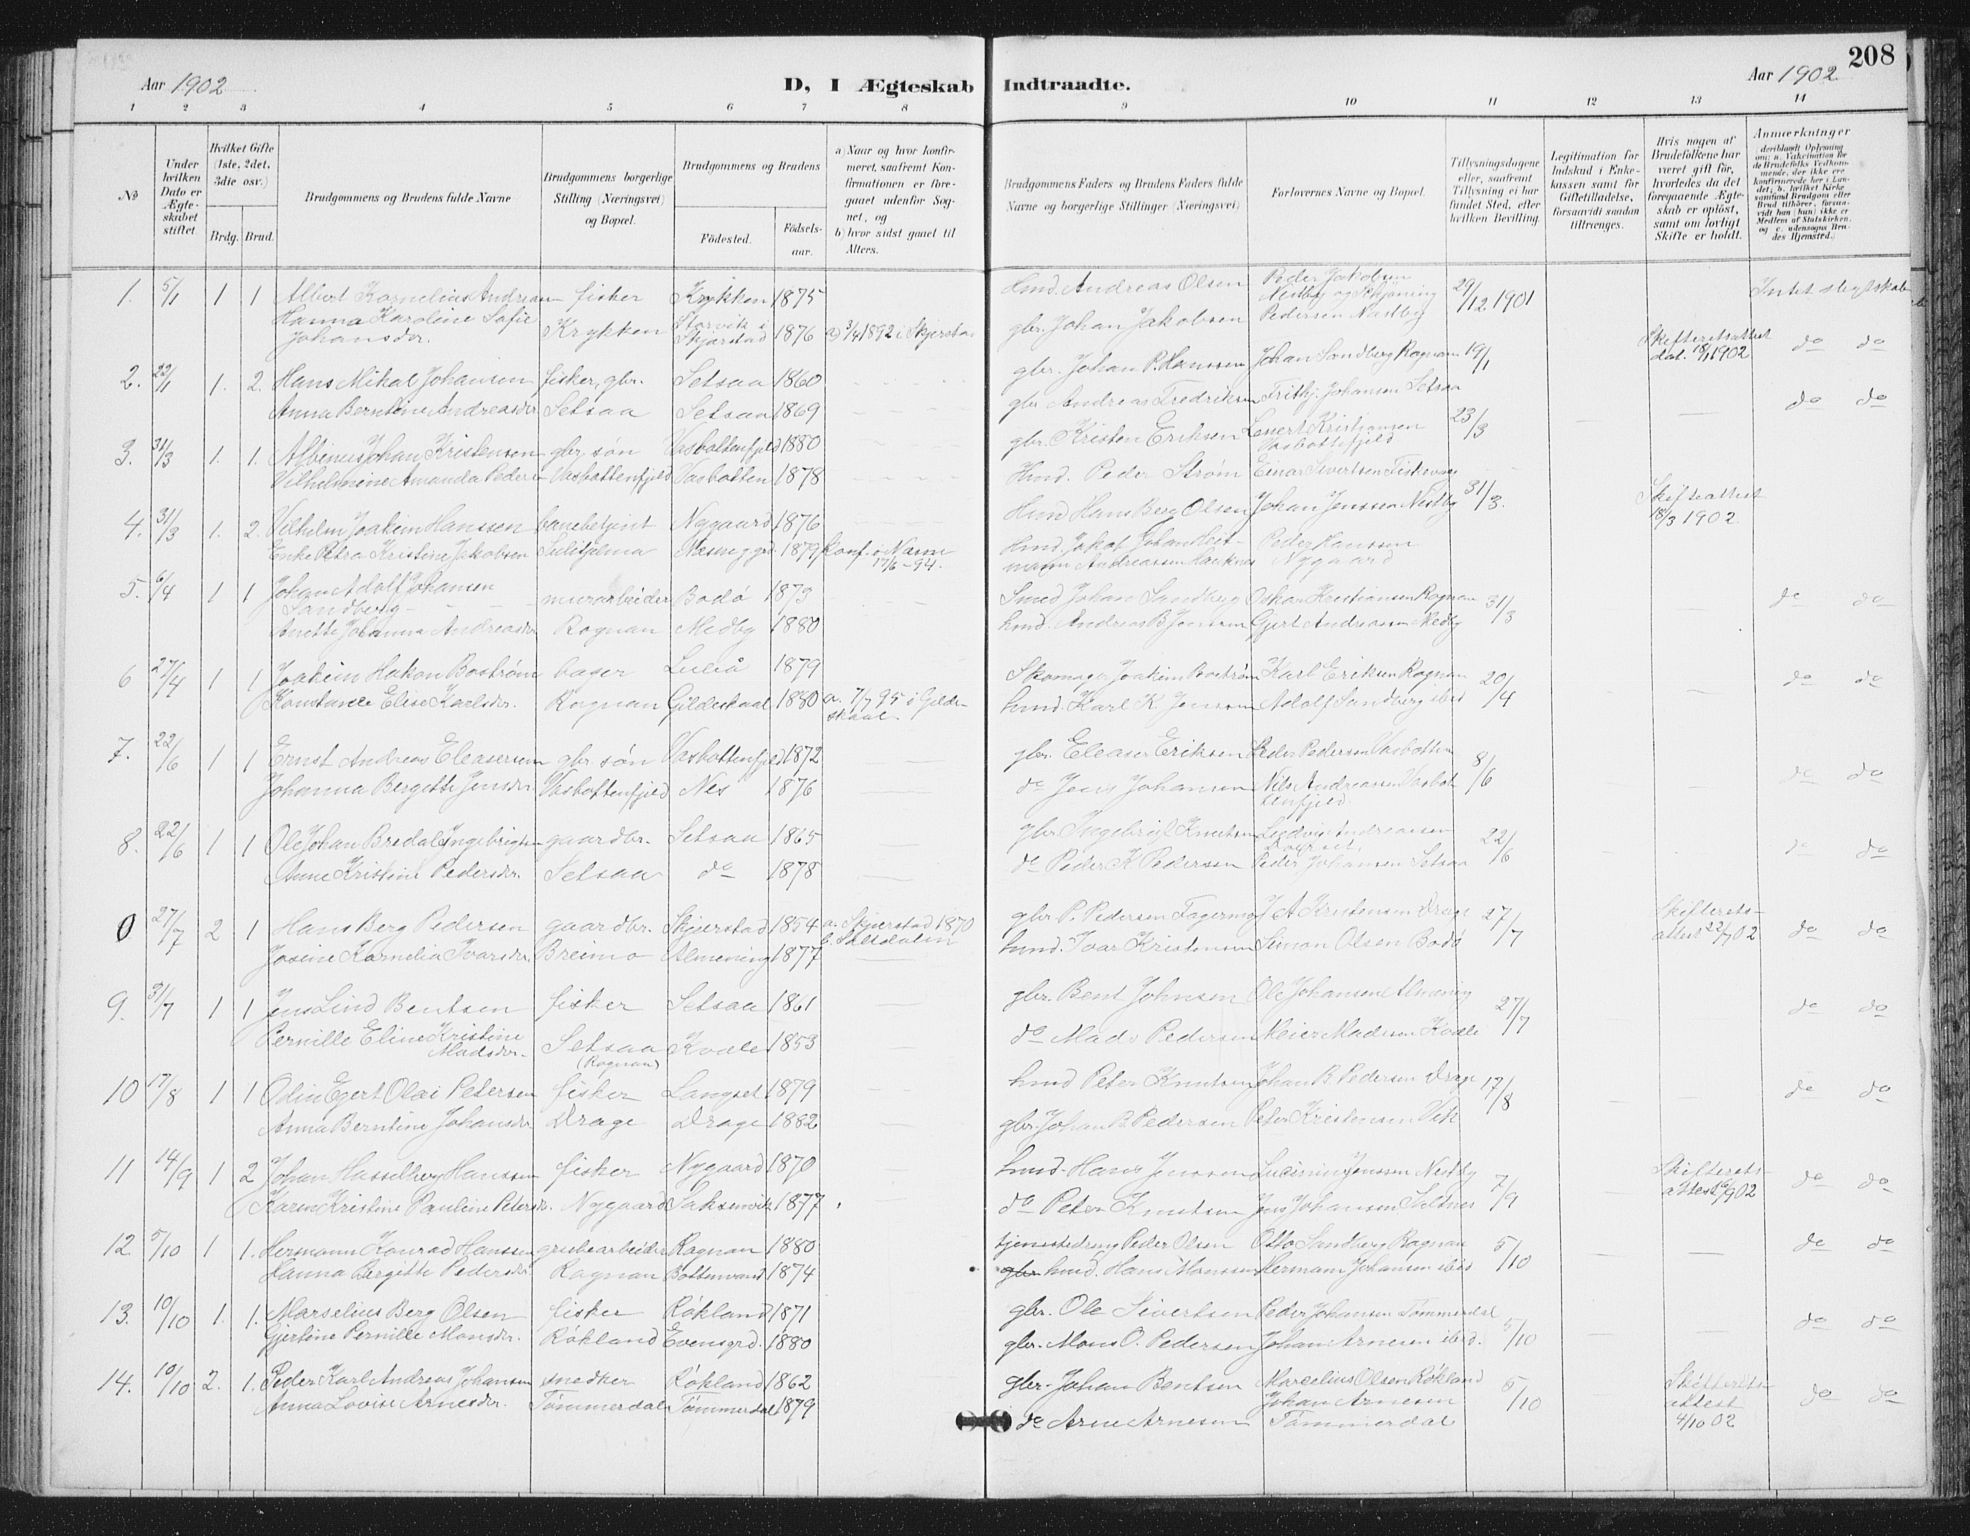 208
Aar 1902
D, I Ægteskab Indtraadte.
Aar 1902
1 2 3 4 5 6 7 8 9 10 11 12 13 14
No
Under hvilken Dato er Ægteskabet stiftet
Hvilket Gifte (1ste, 2det, 3die osv.)
Brdg. Brud.
Brudgommens og Brudens fulde Navne
Brudgommens borgerlige Stilling (Næringsvei) og Bopæl.
Brudgommens og Brudens
Fødested.
Fødselsaar.
a) Naar og hvor konfirmeret, saafremt Konfirmationen er foregaaet udenfor Sognet, og
b) hvor sidst gaaet til Alters.
Brudgommens Faders og Brudens Faders fulde Navne og borgerlige Stillinger (Næringsvei)
Forlovernes Navne og Bopæl.
Tillysningsdagene eller, saafremt Tillysning ei har fundet Sted, efter hvilken Bevilling.
Legitimation for Indskud i Enkekassen samt for Giftetilladelse, forsaavidt saadan tiltrænges.
Hvis nogen af Brudefolkene har været gift før, hvorledes da det foregaaende Ægteskab er opløst, samt om lovligt Skifte er holdt.
Anmærkninger
1. 5/1 1 1 Albert Kornelius Andreassen fisker Krykken 1875 Hmd. Andreas Olsen Peder Jakobsen Nestby og Schjøning 29/12 1901 Intet slegtskab
Hanna Karoline Sofie Johansdr. Krykken Storvik i Skjerstad 1876 a) 3/4 1892 i Skjerstad gbr. Johan Jakobsen Pedersen Nestby
2. 22/1 1. 2. Hans Mikal Johansen fisker, gbr. Setsaa 1860 gbr. Johan P. Hanssen Johan Sandberg Rognan 19/1 Skifteretsattest dat. 18/1 1902 do do
Anna Berntine Andreasdr. Setsaa Setsaa 1869 gbr. Andreas Fredriksen Frithj. Johansen Setsaa
3. 31/3 1. 1. Albinus Johan Kristensen gbr. søn Vasbottenfjeld 1880 gbr. Kristen Eriksen Lenert Kristiansen Vasbottefjeld 23/3 do do
Vilhelmine Amanda Peders Vasbottenfjeld Vasbotten 1878 Hmd. Peder Strøm Einar Sivertsen
4. 31/3 1. 2. Vilhelm Joakim Hanssen banebetjent Nygaard 1876 Hmd Hans Berg Olsen Johan Jenssen Nestby 31/3. Skifteattest 18/3 1902.
Enke Petra Kristine Jakobsen Sulitjelma 1879 Konf. i 17/6 -94. hmd. Jakob Johan Andreassen Peder Hanssen Nygaard
5. 6/4 1 1 Johan Adolf Johansen Sandberg murarbeider Bodø 1873 Smed Johan Sandberg Oskar Kristiansen Rognan 31/3 do do
Anette Johanna Andreasdr. Rognan Medby 1880 hmd. Andreas B. Jensen Gjert Andreassen Medby
6 27/4 1 1 Joakim Hakon Boström bager Luleå 1879 Skomager Joakim Boström Karl Eriksen Rognan 20/4 do do
Konstanse Elise Karlsdr. Rognan Gildeskaal 1880 a. 7/7 95 i Gildeskaal hmd. Karl K. Jensen Adolf Sandberg ibid
7. 22/6 1 1 Ernst Andreas Eleasersen gbr. søn Vasbottenfjeld 1872 gbr. Eleaser Eriksen Peder Pedersen Vasbotten 8/6 do do
Johanna Bergitte Jensdr. Vasbottenfjeld Nes 1876 do Jens Johansen Nils Andreassen Vasbottenfjeld
8. 22/6 1 1 Ole Johan Bredal Ingebrigtsen gaardbr. Setsaa 1865 gbr. Ingebrigt Knutsen Ludvig Andreassen 22/6 do do
Anne Kristine Pedersdr. Setsaa do 1878 do Peder K Pedersen Peder Johansen Setsaa
0 27/7 2 1 Hans Berg Pedersen gaardbr. Skjerstad 1854 a. Skjerstad 1870 b. Saltdalen gbr P. Pedersen Fagermo J A Kristensen Drage 27/7 Skifteretsattest 22/7 02 do do
Josine Kornelia Ivarsdr. Breimo Almening 1877 hmd. Ivar Kristensen Simon Olsen Bodø
9. 31/7 1 1 Jens Lind Bentsen fisker Setsaa 1861 gbr. Bent Johnsen Ole Johansen Almening 27/7 do do
Pernille Eline Kristine Madsdr. Setsaa (Rognan) Kvæle 1853 do Mads Pedersen Meier Madsen Kvæle
10 17/8 1 1 Odin Egert Olai Petersen fisker Langset 1879 hmd Peter Knutsen Johan B. Pedersen Drage 17/8 do do
Anna Berntine Johansdr. Drage Drage 1882 gbr. Johan B. Pedersen Peter Kristensen Vik
11 14/9 1 2 Johan Hasselberg Hanssen fisker Nygaard 1870 hmd. Hans Jenssen Jenssen Nestby 7/9 Skifteretsattest 902 do do
Karen Kristine Pauline Petersdr. Nygaard Saksenvik 1877 do Peter Knutsen Jens Johansen Saltnes
12. 5/10 1 1. Hermann Konrad Hanssen grubearbeider Rognan 1880 Peder Olsen Otto Sandberg Rognan 5/10 do do
Hanna Bergitte Pedersdr. Rognan Bottenvand 1874 gbr hmd. Hans Monssen Hermann Johansen ibid
13. 10/10 1. 1. Marselius Berg Olsen fisker Røkland 1871 gbr. Ole Sivertsen Peder Johansen Tømmerdal 5/10 do do
Gjertine Pernille Monsdr. Røkland Evensgrd. 1880 gbr. Mons O. Pedersen Johan Arnesen ibid.
14. 10/10 2. 1. Peder Karl Andreas Johansen snedker Røkland 1862 gbr. Johan Bentsen Marselius Olsen Røkland 5/10 Skifteretsattest 4/10 02 do do
Anna Lovise Arnesdr. Tømmerdal Tømmerdal 1879 do Arne Arnesen Johan Arnesen Tømmerdal